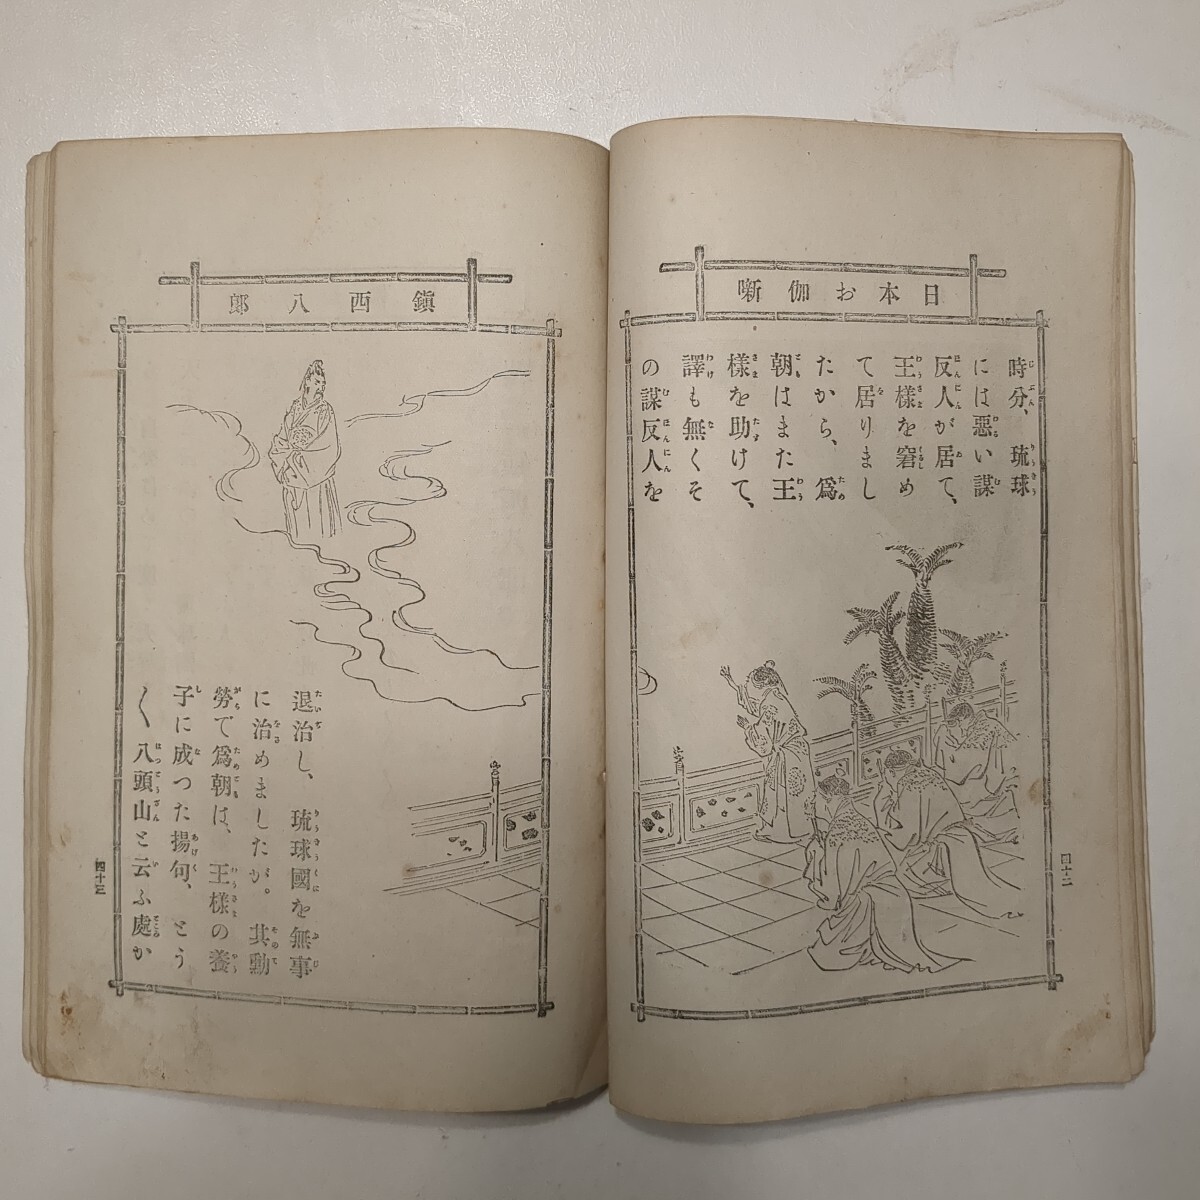 日本お伽噺
時分、琉球
には惡い謀
反人が居て、
王様を窘め
て居りまし
たから、爲
朝はまた王
様を助けて、
譯も無くそ
の謀反人を
四十二
鎭西八郎
退治し、琉球國を無事
に治めましたが。其勳
勞で爲朝は、王様の養
子に成つた揚句、とう
〱八頭山と云ふ處か
四十三